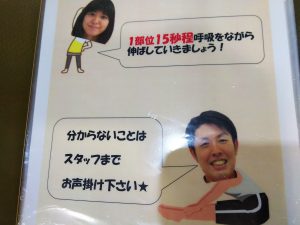 1部位15秒程呼吸をながら
伸ばしていきましょう！
分からないことは
スタッフまで
お声掛け下さい★